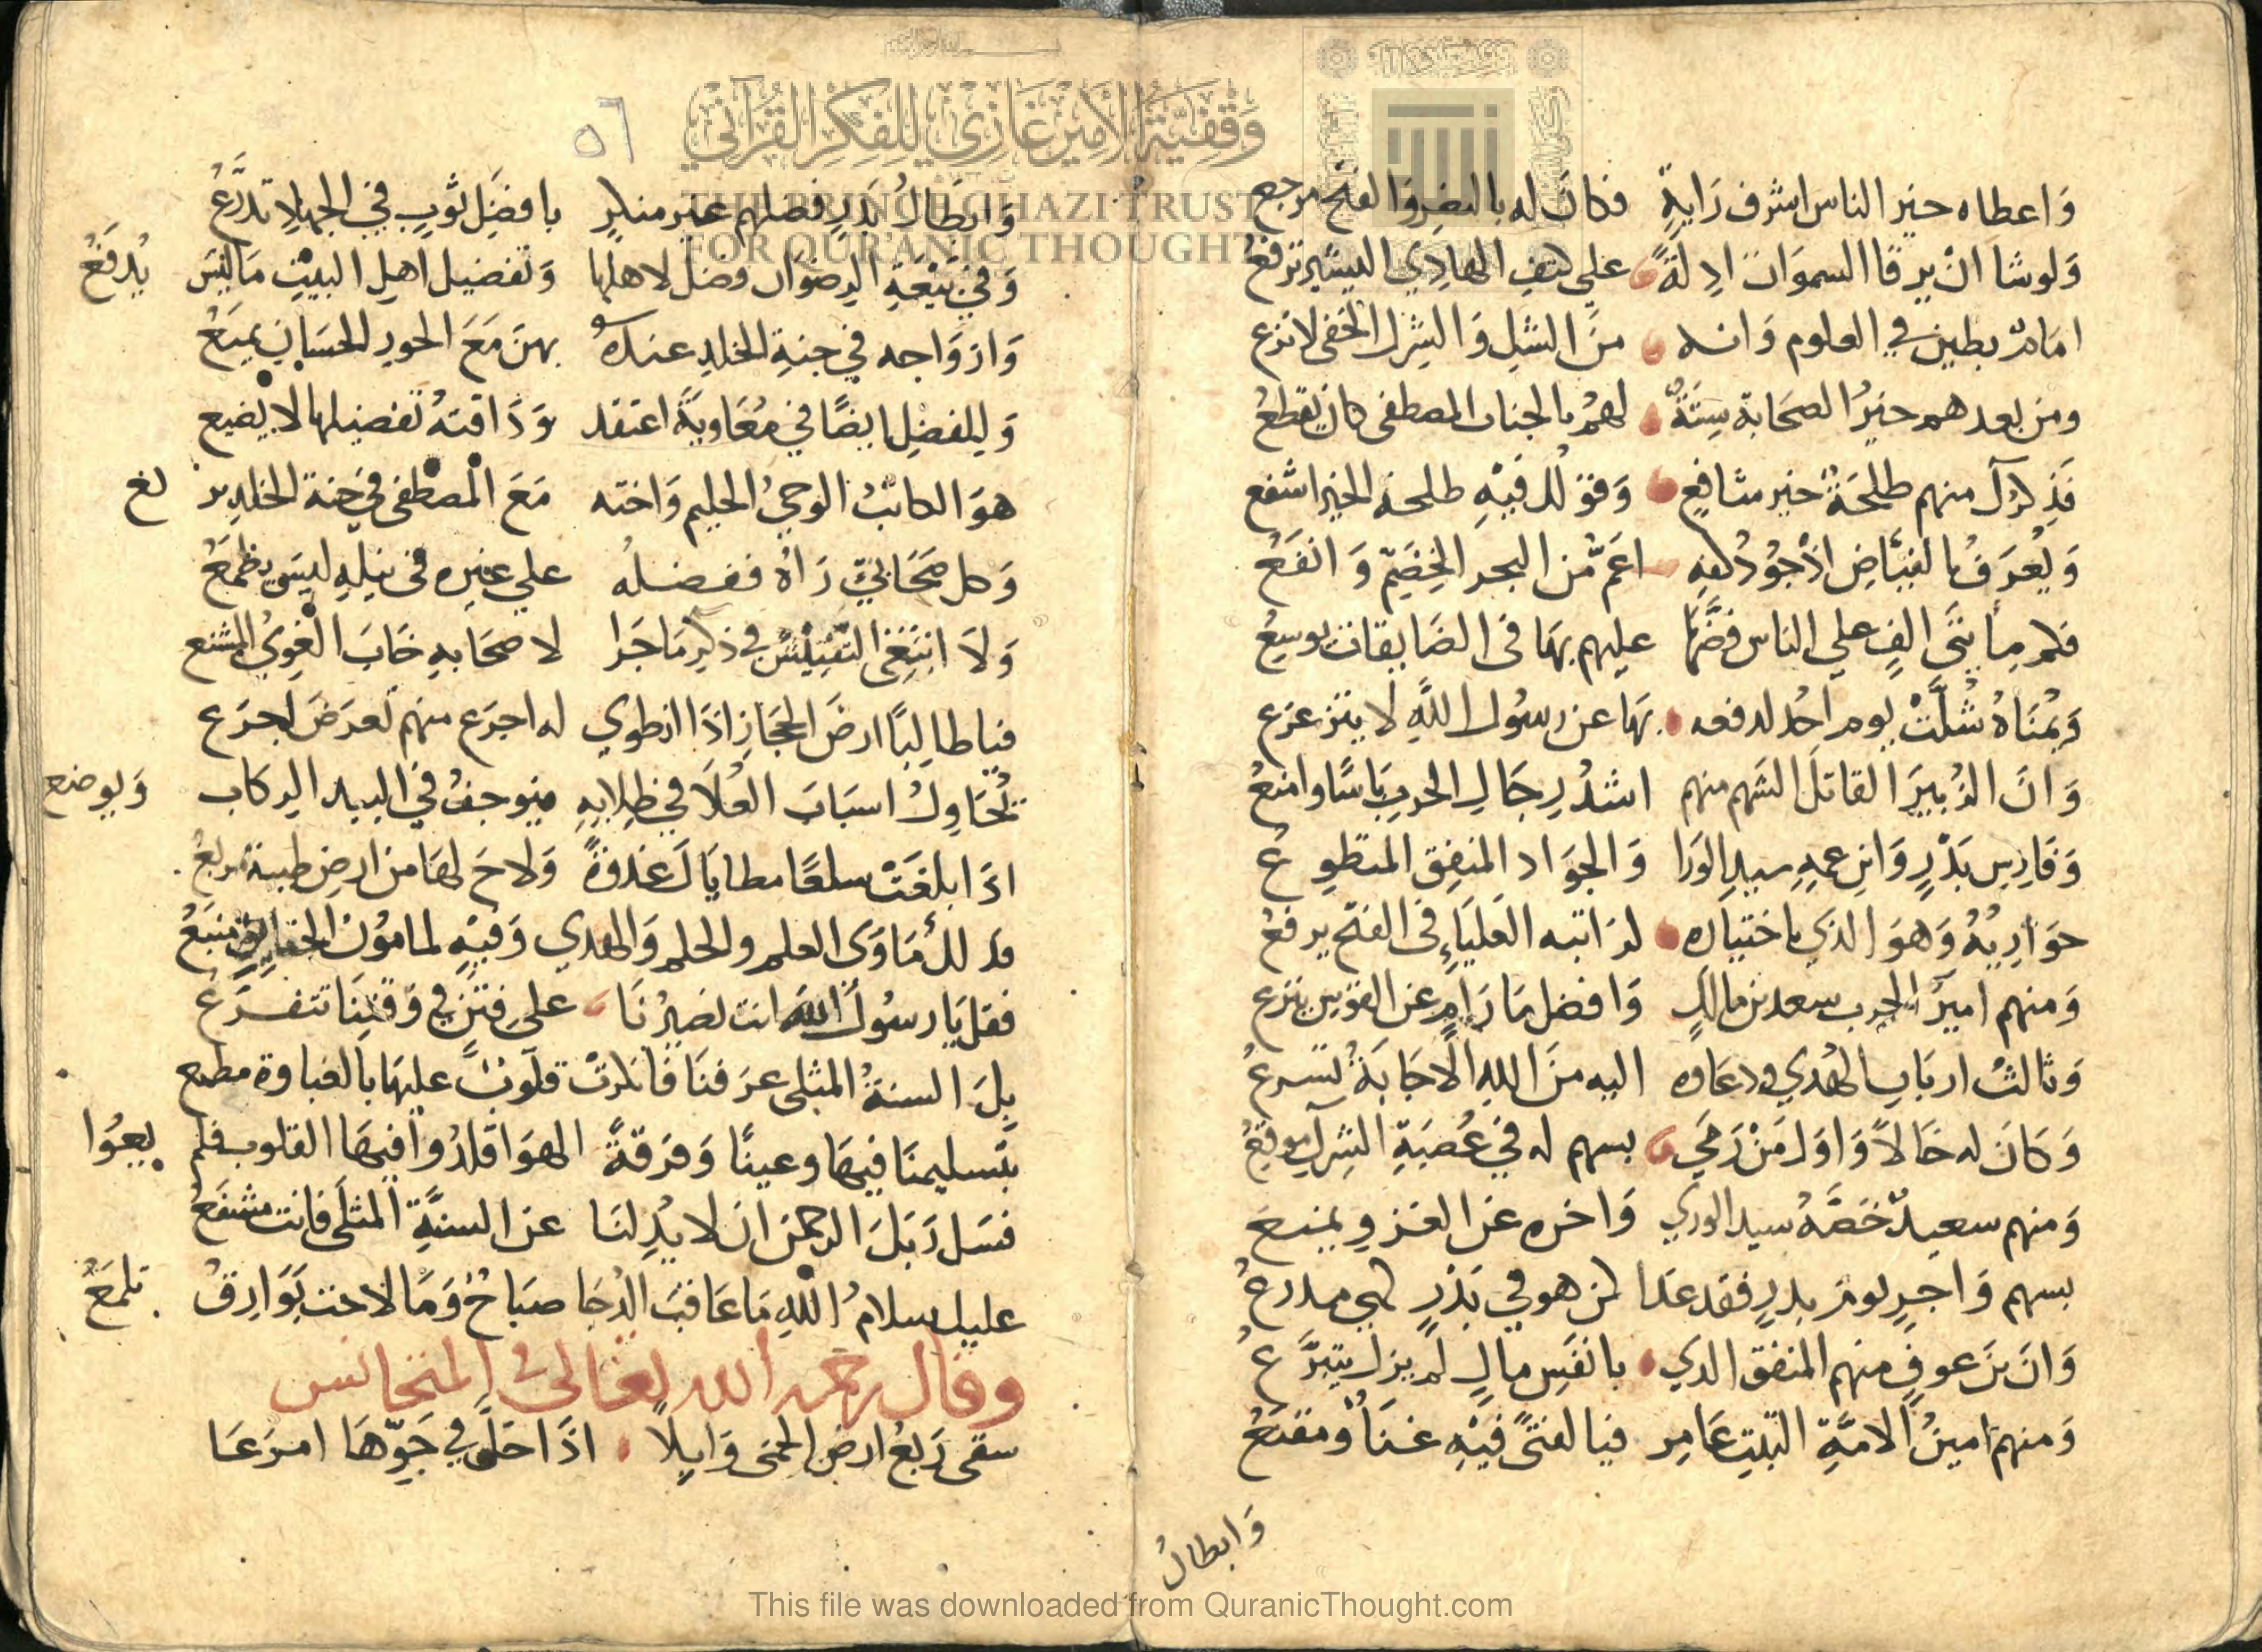 وَقْفِيَّةُ الأَمِيرِ غَازِي لِلفِكْرِ القُرْآنِي
THE PRINCE GHAZI TRUST
FOR QUR'ANIC THOUGHT
وَاعطاه خير الناس اشرف رَايةٍ فكانَ له بالنصرِ وَالفتح مرجع
وَلوشا انْ يرقا السموَات ادلةً علي كتفِ الهادِي البشير ترفعُ
امَامٌ بطين في العلوم وَانه منَ الشك وَالشرك الخفى لانزع
ومن بعدهم خيرُ الصحَابة ستَةٌ لهمُ بالجنان المصطفى كان يقطعُ
فَذكرك منهم طلحَةٌ خير شافعٍ وَفوزك فيْهِ طلحة الخير اشفع
وَيُعرَفُ بالفيَّاضِ اذْ جُودُ كفهِ اعَمُّ من البحر الخِضَمِّ وَانفَعُ
فكم مِأيتَى الفٍ علي الناس فضَّها عليهم بهَا فى الضَايقات يوسِعُ
وَيمُنَاهُ شُلَّتْ يوم احُد لدفعه بهَا عن رسُول اللَّهِ لا يتزعزع
وَانَ الزُبيرَ القاتلَ الشهم منهم اشدُ رِجَالِ الحربِ بَاسًا وامنعُ
وَفَارِس بَدْرٍ وَابن عمهِ سيدِ الوَرا وَالجوَاد المنفِق المتطوِعُ
حوَارِيهُ وَهوَ الذي باختيَاره لرَاتبه العَليَاءِ فى الفتح يرفعُ
وَمنهم اميرَ الحرب سعد بن مالكٍ وَافضل مَا رَامٍ عن القوس ينزع
وَثالث اربَابِ الهُدي ودعَاوه اليه منَ اللهِ الاجَابَةُ تسرعُ
وَكانَ له خَالاً وَاوَل مَنْ رَمَي بسهم له في عُصبَةِ الشِرك موقِعُ
وَمنهم سعيدٌ خَصَّهُ سيد الوري وَاخره عن الغزوِ يمنع
بسهم وَاجرٍ يومَ بدرٍ فقد غدا كمن هو في بَدْرٍ كمى مدرعُ
وَانَ بنَ عوفٍ منهم المنفق الذي بانفَسِ مالٍ لم يزل يتبرَّعُ
وَمنهم امينُ الامَّةِ الثبت عَامِر فيا لفتًى فيْهِ غنَاً ومقنعُ
وَابطالُ
٥٦
وَابطَالُ بَدَرٍ فضلهم غير منكرٍ بافضَل ثوبٍ في الجهادِ تدَّرعُ
وَفي بَيْعَةِ الرضوَان فضل لاهلها وَتفضيل اهل البيْتِ مَاليسَ يُدفَعُ
وَازوَاجه في جنةِ الخلدِ عنده بهنَ مَعَ الحورِ الحسَانِ يمتعُ
وَللفضل ايضًا في مُعَاويَةَ اعتقد وَذَاقتهُ تفضيلها لا يضيع
هوَ الكاتبُ الوحيُ الحليم وَاخته مَعَ المصطفى في جنة الخلد تر تع
وَكل صحَابيّ رَاهُ ففضلهُ علي غيره فى نيلهِ ليسَ يطمَعُ
وَلَا ابتغي التفتِيْش في ذكر مَا جَرا لاصحَابهِ خَابَ الغوِيُ المشنع
فيا طالبًا ارضَ الحجَازِ اذَا انطوي له اجرَع منهم تعرَضَ اجرَع
تُحَاوِلُ اسبَابَ العُلَا في طِلابِهِ فيوجفُ في البيد الركاب وَيوضع
اذَا بلغَتْ سلعًا مطايَاكَ غدوةً وَلاحَ لهَا من ارضِ طيبة مربعُ
فذلك مَاوَى العلم والحلم وَالهدي وَفيْهِ لمامُوْن الحقايق منبَعُ
فقل يَا رسُولَ اللَّهِ انت نصيرُنَا علي فتنٍ في وَقتنَا تتفرَّعُ
بِكَ السنةُ المثلى عرَفنَا فانكرتْ قلوبٌ عليهَا بالغباوة مطبع
بتسليمنَا فيهَا وعينًا وَفرَقةً الهوَا قلدُوا فيهَا القلوب فلم يعوُا
فسَل رَبكَ الرحمنَ ان لا يُزِلنَا عن السنَّةِ المثلَى فانت مشفَعُ
عليك سلامُ اللهِ مَا عَاقبَ الدُجَا صبَاحٌ وَمَا لاحت بَوَارِقُ تلمَعُ
وقال رحمه الله تعالى في المتجانس
سقى رَبعُ ارضِ الحمَى وَابِلًا اذَا حَلَّ في جَوّهَا امرَعَا
This file was downloaded from QuranicThought.com